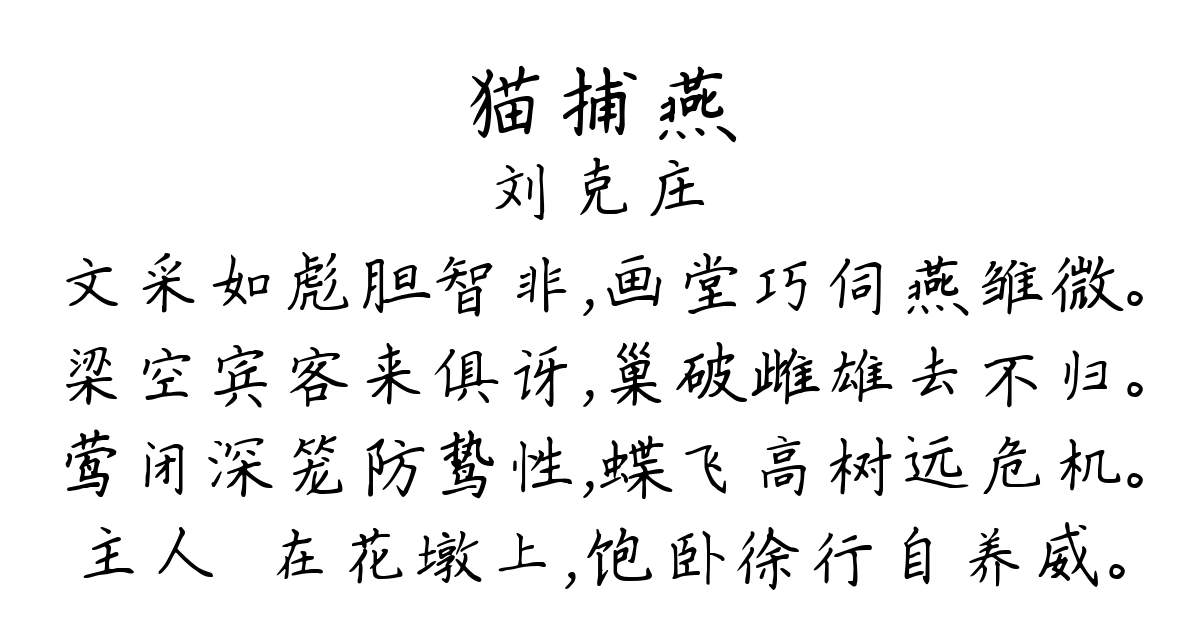 猫捕燕
刘克庄
文采如彪胆智非,画堂巧伺燕雏微。
梁空宾客来俱讶,巢破雌雄去不归。
莺闭深笼防鸷性,蝶飞高树远危机。
主人 在花墩上,饱卧徐行自养威。